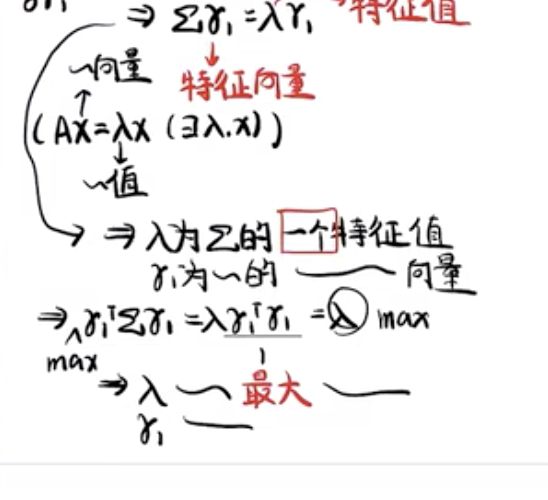 ⇒ Σγ₁=λγ₁ 特征值
~向量 特征向量
(Ax=λx (∃λ.x))
~值
⇒ λ为Σ的一个特征值
γ₁为~的 —— 向量
⇒ γ₁ᵀΣγ₁ =λγ₁ᵀγ₁ =λ max
max 1
⇒ λ ~ 最大 ——
γ₁ ——